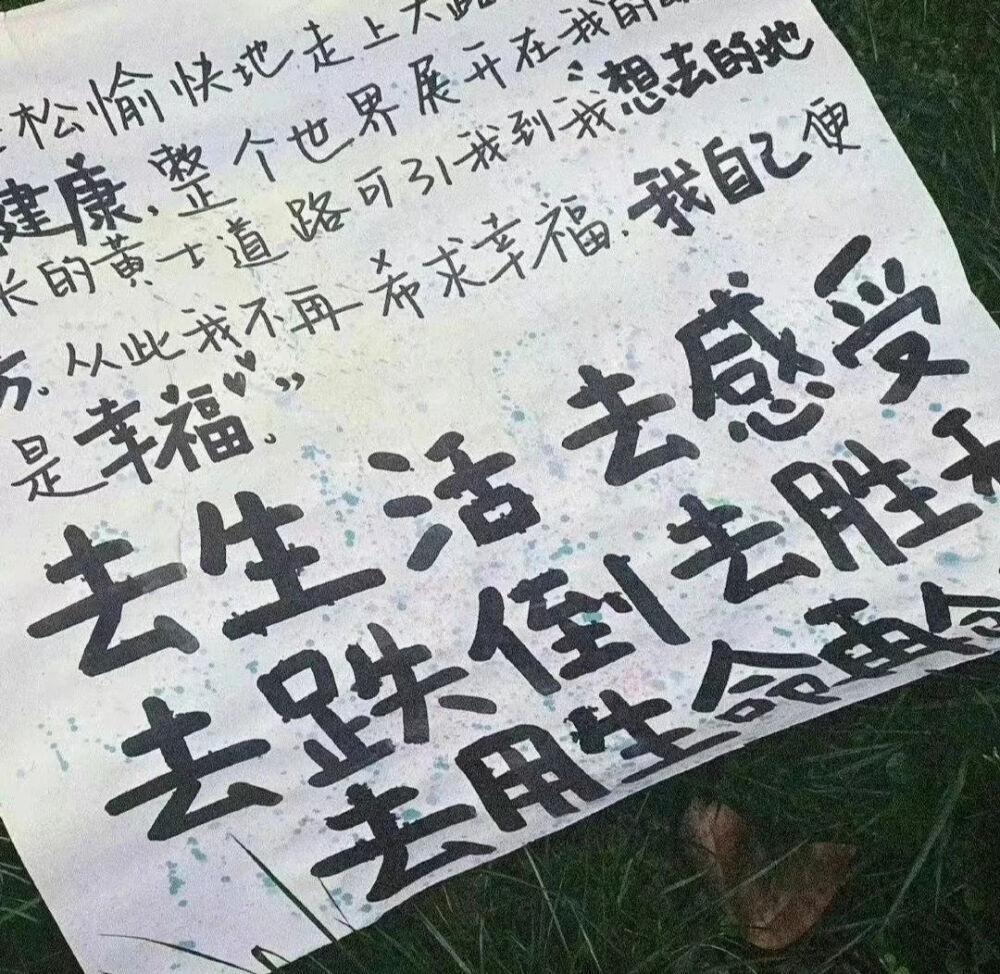 松愉快地走上大路
健康,整个世界展开在我的
长的黄土道路可引我到我“想去的地
方。从此我不再希求幸福,我自己便
是幸福♥♥”。
去生活 去感受
去跌倒 去胜
去用生命再